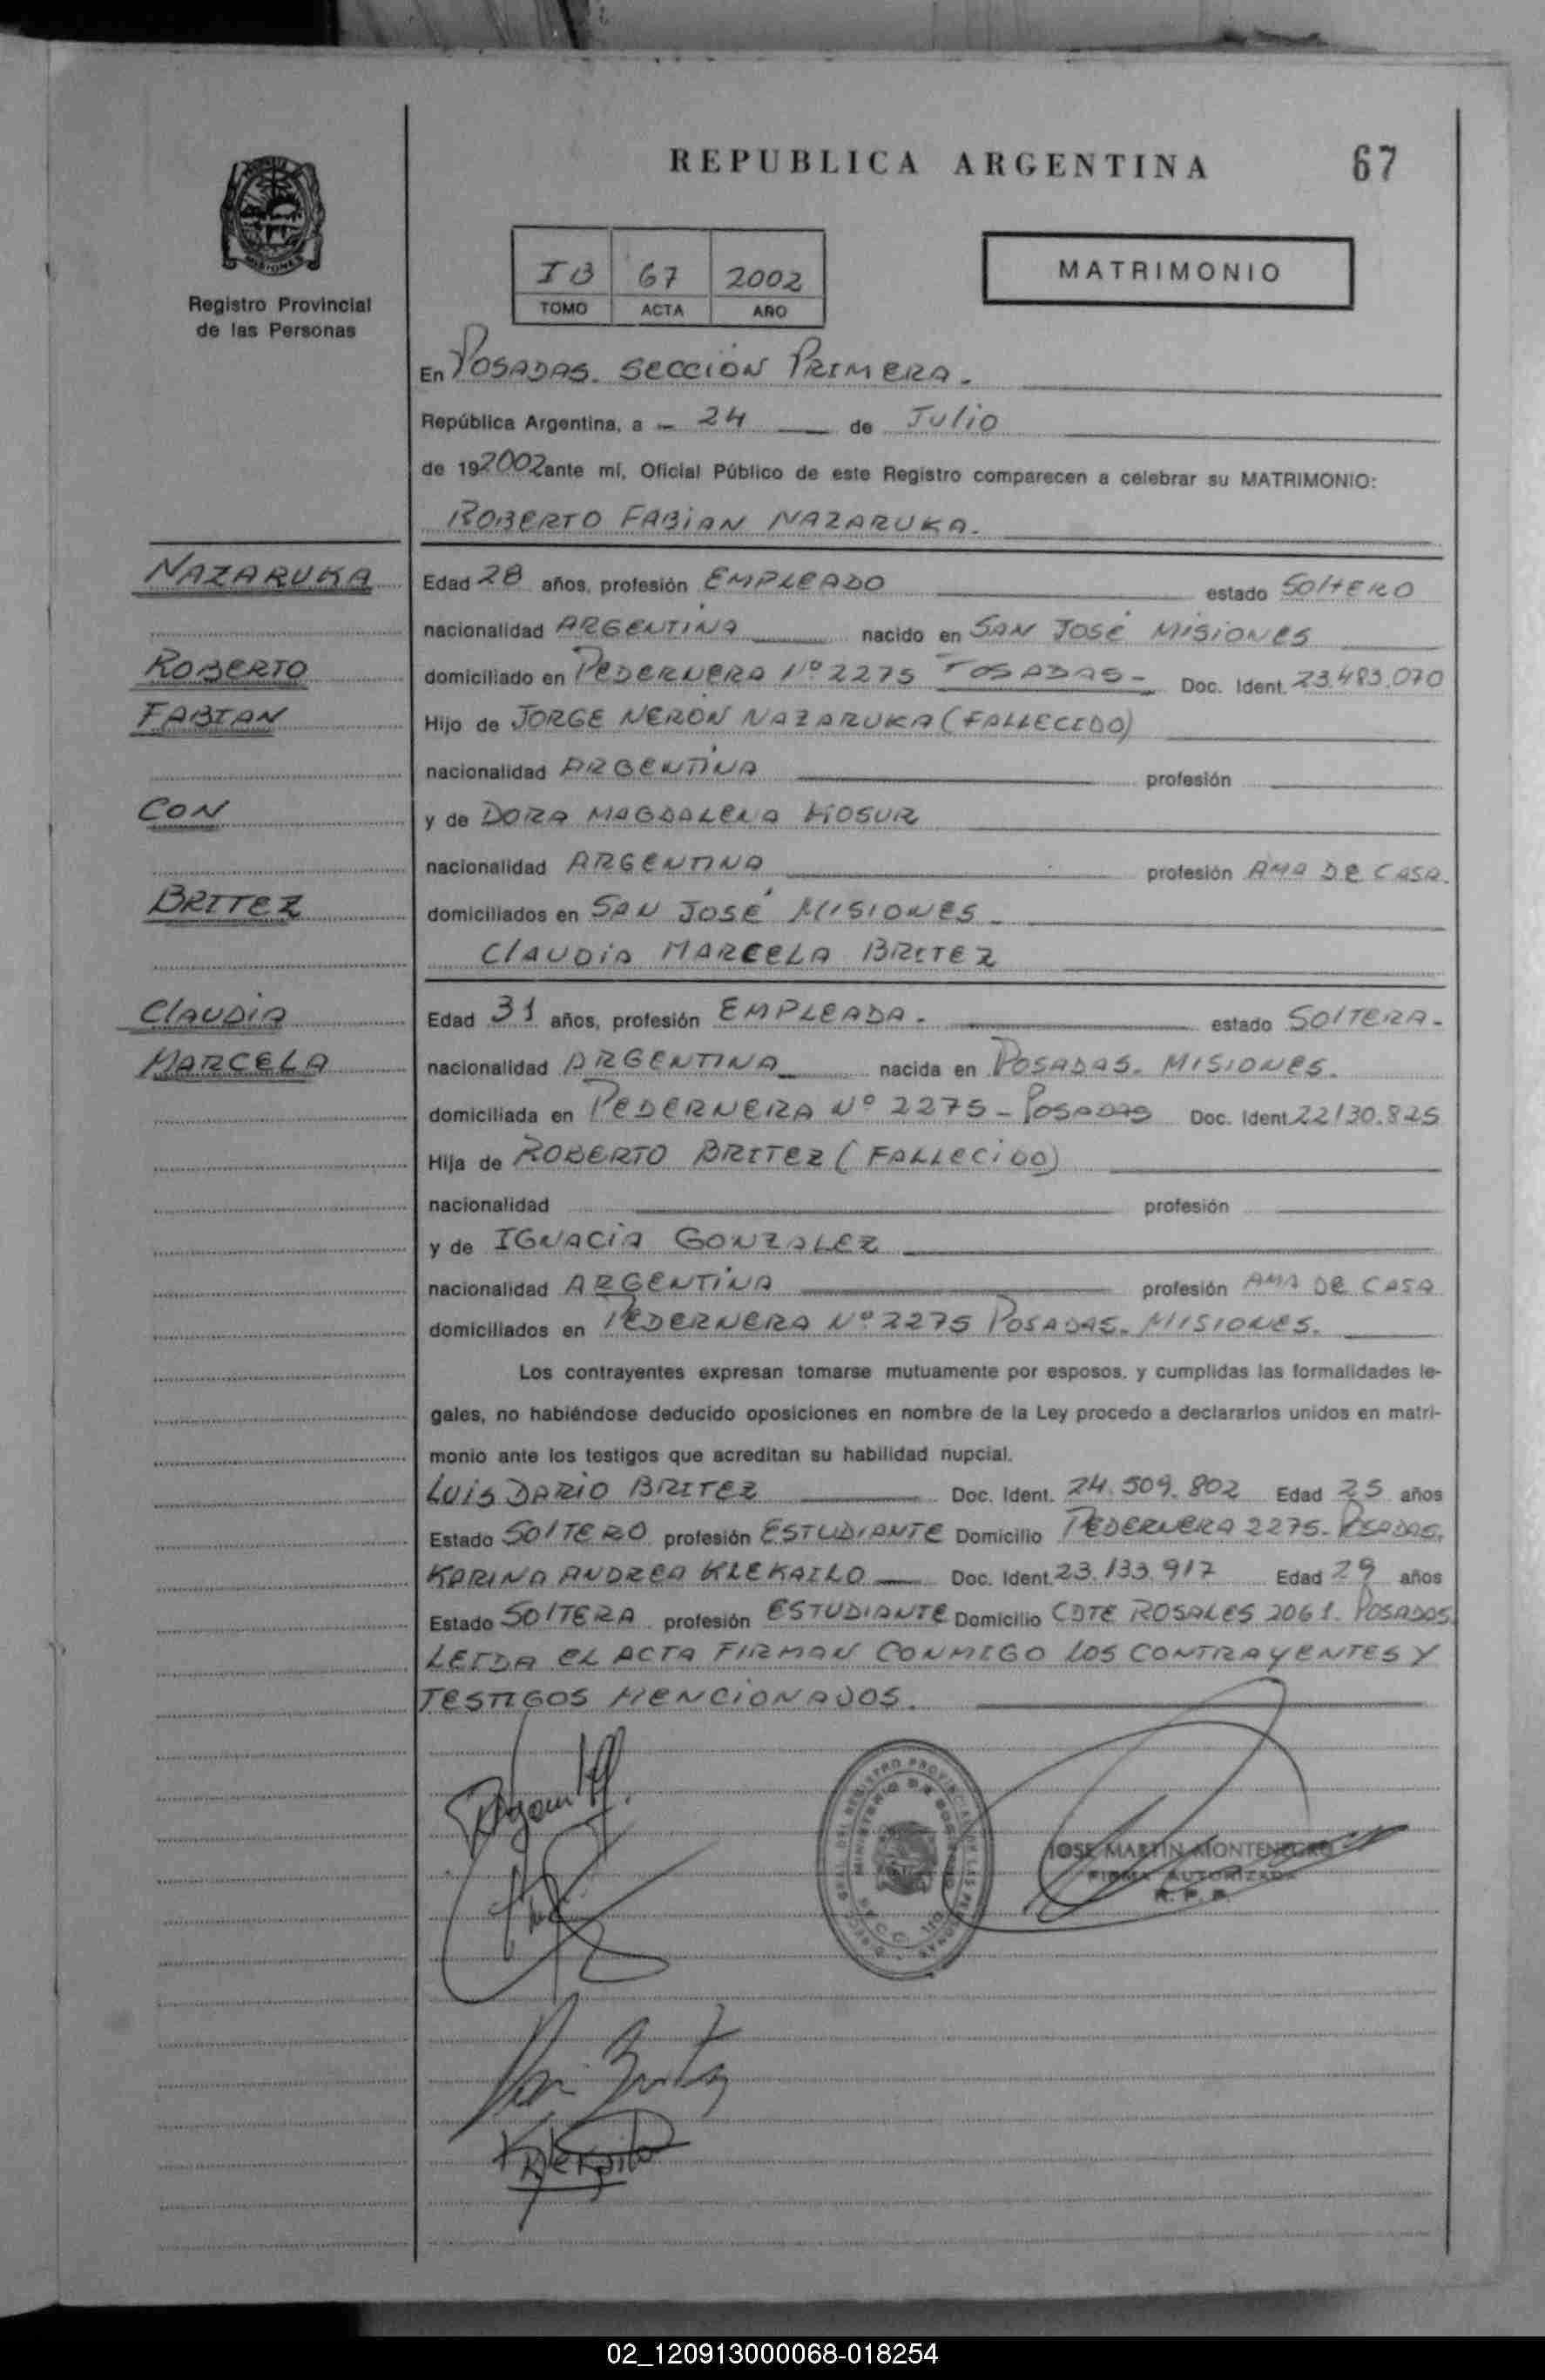 REPUBLICA ARGENTINA
67
MISIONES
Registro Provincial
de las Personas
IB 67 2002
TOMO ACTA AÑO
MATRIMONIO
En POSADAS. SECCIÓN PRIMERA.
República Argentina, a - 24 de Julio
de 192002 ante mí, Oficial Público de este Registro comparecen a celebrar su MATRIMONIO:
ROBERTO FABIAN NAZARUKA.
NAZARUKA
ROBERTO
FABIAN
CON
BRITEZ
CLAUDIA
MARCELA
Edad 28 años, profesión EMPLEADO estado SOLTERO
nacionalidad ARGENTINA nacido en SAN JOSÉ MISIONES
domiciliado en PEDERNERA Nº 2275 POSADAS- Doc. Ident. 23.483.070
Hijo de JORGE NERÓN NAZARUKA (FALLECIDO)
nacionalidad ARGENTINA profesión
y de DORA MAGDALENA KOSUR
nacionalidad ARGENTINA profesión AMA DE CASA.
domiciliados en SAN JOSÉ MISIONES
CLAUDIA MARCELA BRITEZ
Edad 31 años, profesión EMPLEADA. estado SOLTERA-
nacionalidad ARGENTINA nacida en POSADAS. MISIONES.
domiciliada en PEDERNERA Nº 2275 - POSADAS Doc. Ident. 22130.825
Hija de ROBERTO BRITEZ (FALLECIDO)
nacionalidad profesión
y de IGNACIA GONZALEZ
nacionalidad ARGENTINA profesión AMA DE CASA
domiciliados en PEDERNERA Nº 2275 POSADAS. MISIONES.
Los contrayentes expresan tomarse mutuamente por esposos, y cumplidas las formalidades le-
gales, no habiéndose deducido oposiciones en nombre de la Ley procedo a declararlos unidos en matri-
monio ante los testigos que acreditan su habilidad nupcial.
LUIS DARIO BRITEZ Doc. Ident. 24.509.802 Edad 25 años
Estado SOLTERO profesión ESTUDIANTE Domicilio PEDERNERA 2275- POSADAS.
KARINA ANDREA KLEKAILO Doc. Ident. 23.133.917 Edad 29 años
Estado SOLTERA profesión ESTUDIANTE Domicilio CDTE ROSALES 2061. POSADAS.
LEIDA EL ACTA FIRMAN CONMIGO LOS CONTRAYENTES Y
TESTIGOS MENCIONADOS.
JOSE MARTIN MONTENEGRO
FIRMA AUTORIZADA
R. P. P.
02_120913000068-018254